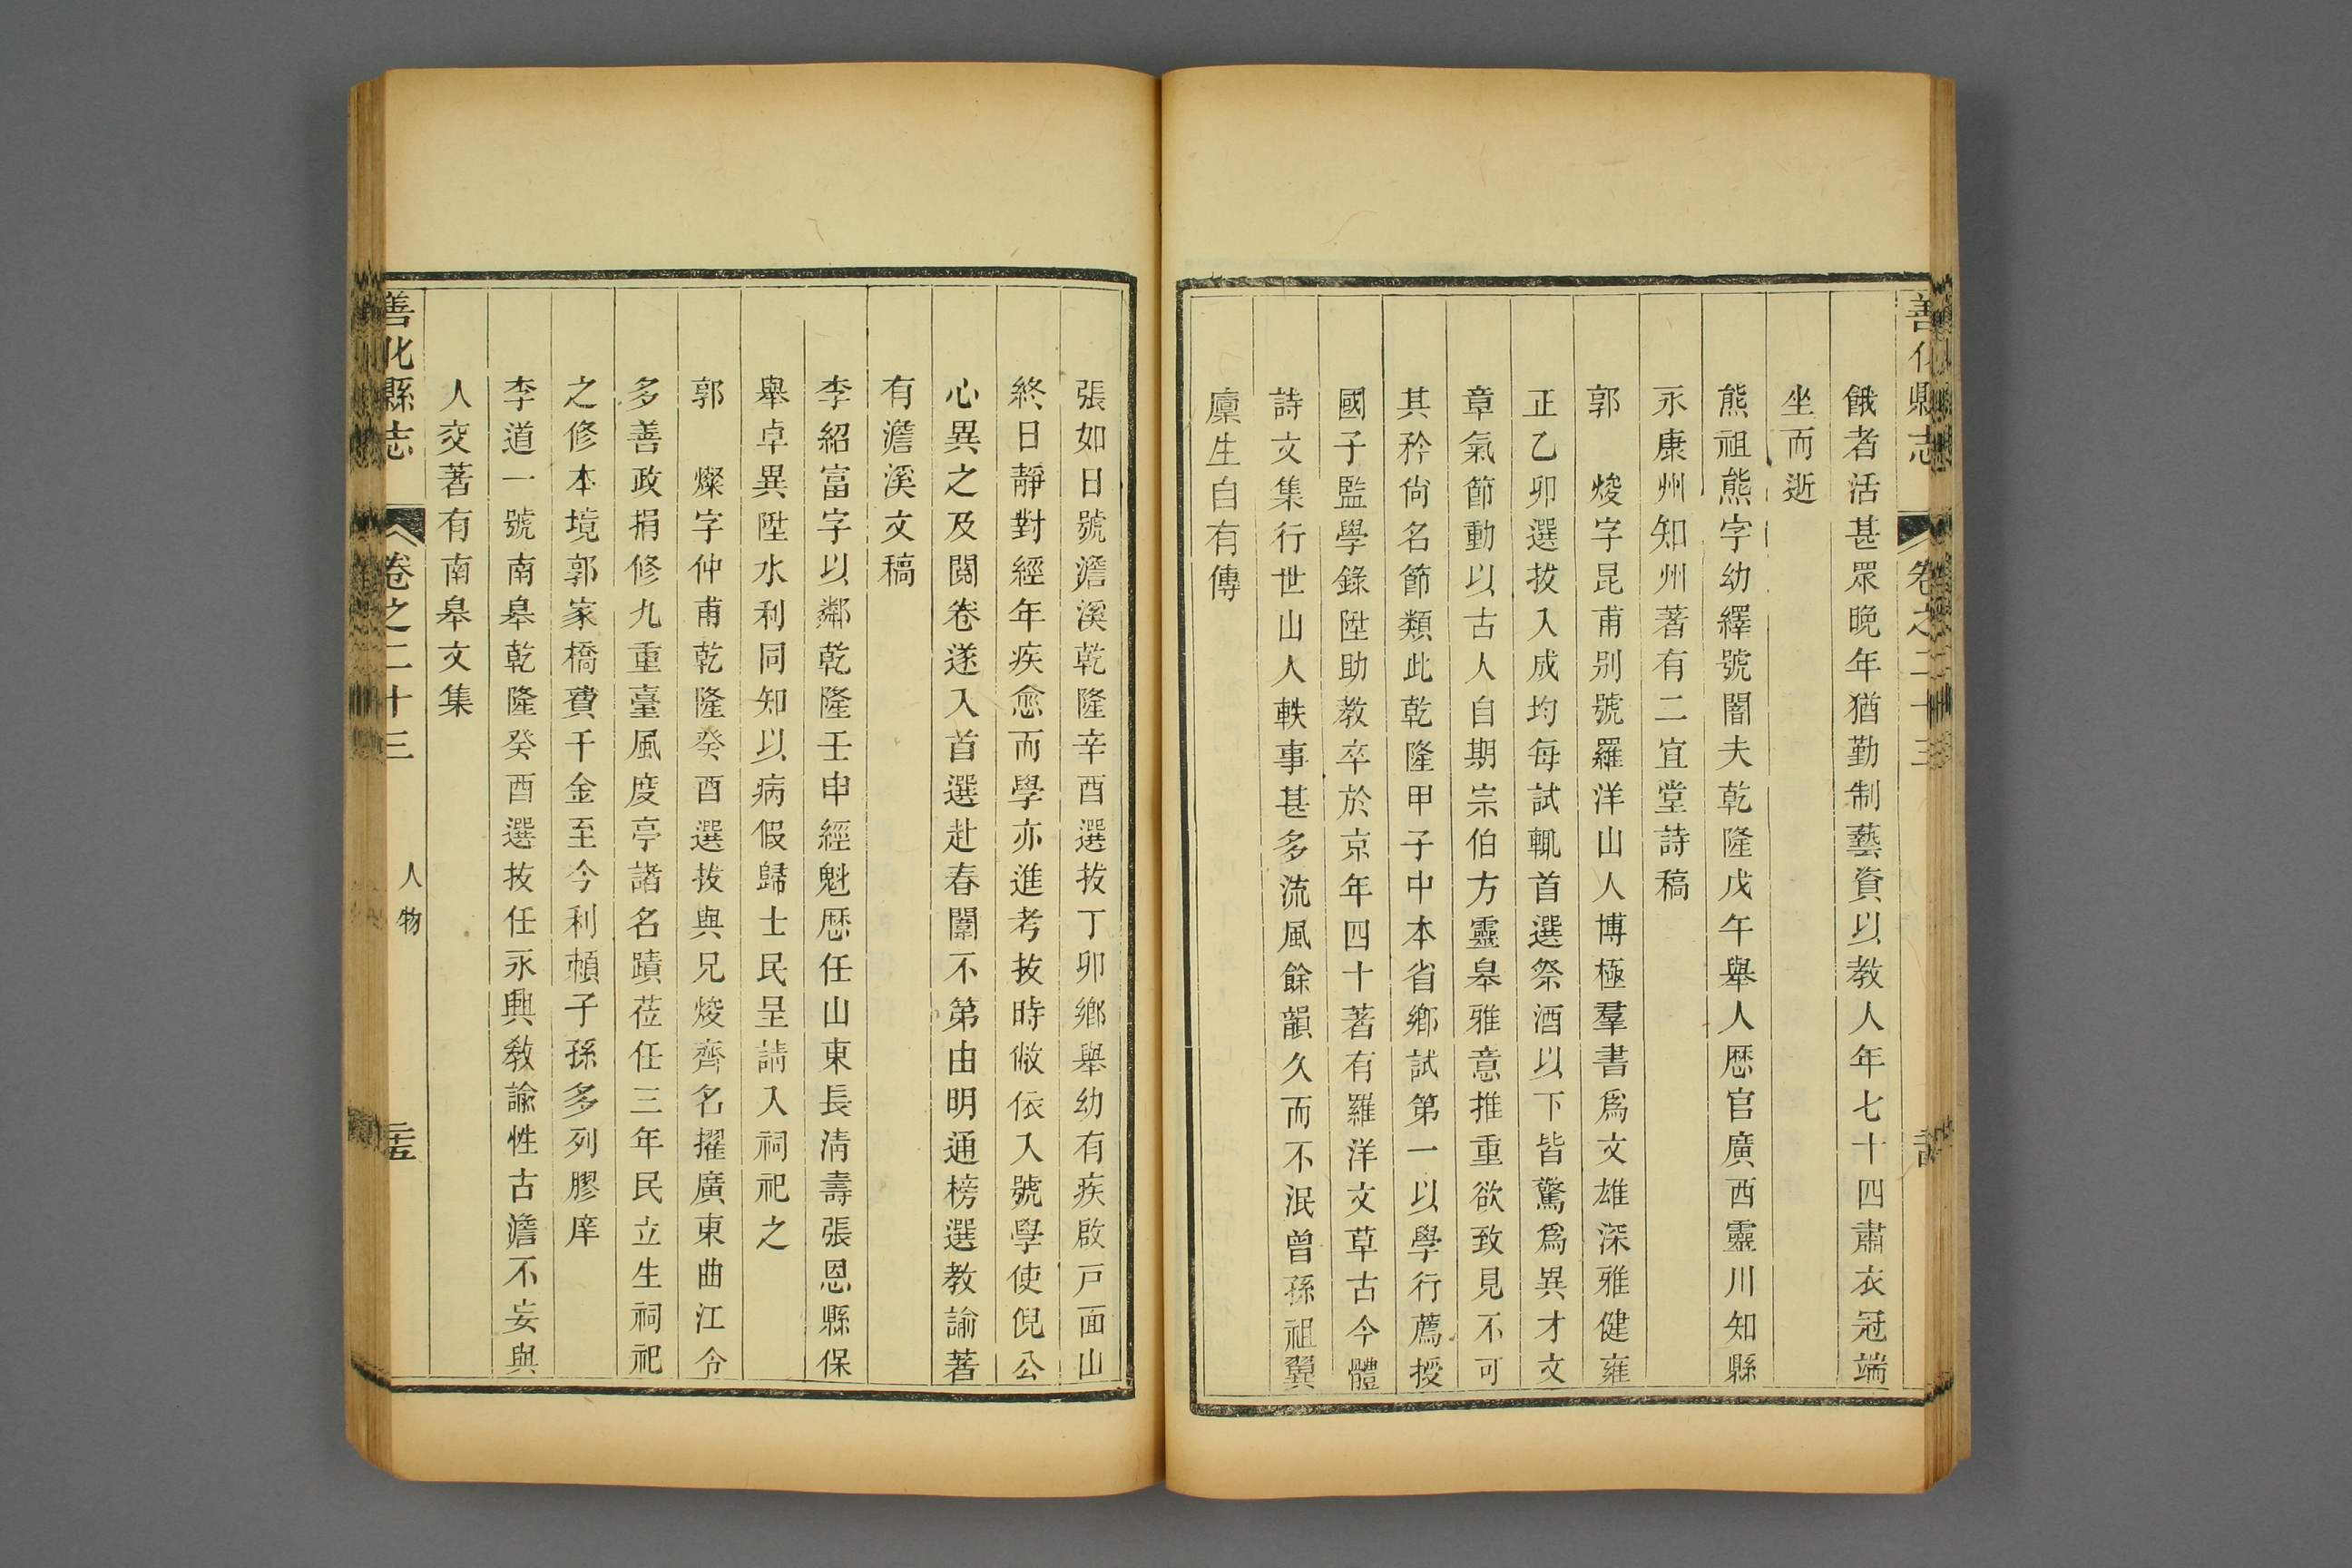 善化縣志 卷之二十三
餓者活甚眾晚年猶勤制藝資以教人年七十四肅衣冠端
坐而逝
熊祖熊字幼繹號闇夫乾隆戊午舉人歷官廣西靈川知縣
永康州知州著有二宜堂詩稿
郭 焌字昆甫别號羅洋山人博極羣書爲文雄深雅健雍
正乙卯選拔入成均每試輒首選祭酒以下皆驚爲異才文
章氣節動以古人自期宗伯方靈皋雅意推重欲致見不可
其矜尙名節類此乾隆甲子中本省鄉試第一以學行薦授
國子監學錄陞助教卒於京年四十著有羅洋文草古今體
詩文集行世山人軼事甚多流風餘韻久而不泯曾孫祖翼
廩生自有傳
張如日號澹溪乾隆辛酉選拔丁卯鄉舉幼有疾啟戸面山
終日靜對經年疾愈而學亦進考拔時敝依入號學使倪公
心異之及閱卷遂入首選赴春闈不第由明通榜選教諭著
有澹溪文稿
李紹富字以鄰乾隆壬申經魁歷任山東長清壽張恩縣保
舉卓異陞水利同知以病假歸士民呈請入祠祀之
郭 燦字仲甫乾隆癸酉選拔與兄焌齊名擢廣東曲江令
多善政捐修九重臺風度亭諸名蹟莅任三年民立生祠祀
之修本境郭家橋費千金至今利賴子孫多列膠庠
李道一號南皋乾隆癸酉選拔任永興敎諭性古澹不妄與
人交著有南皋文集
善化縣志 卷之二十三 人物 二十五